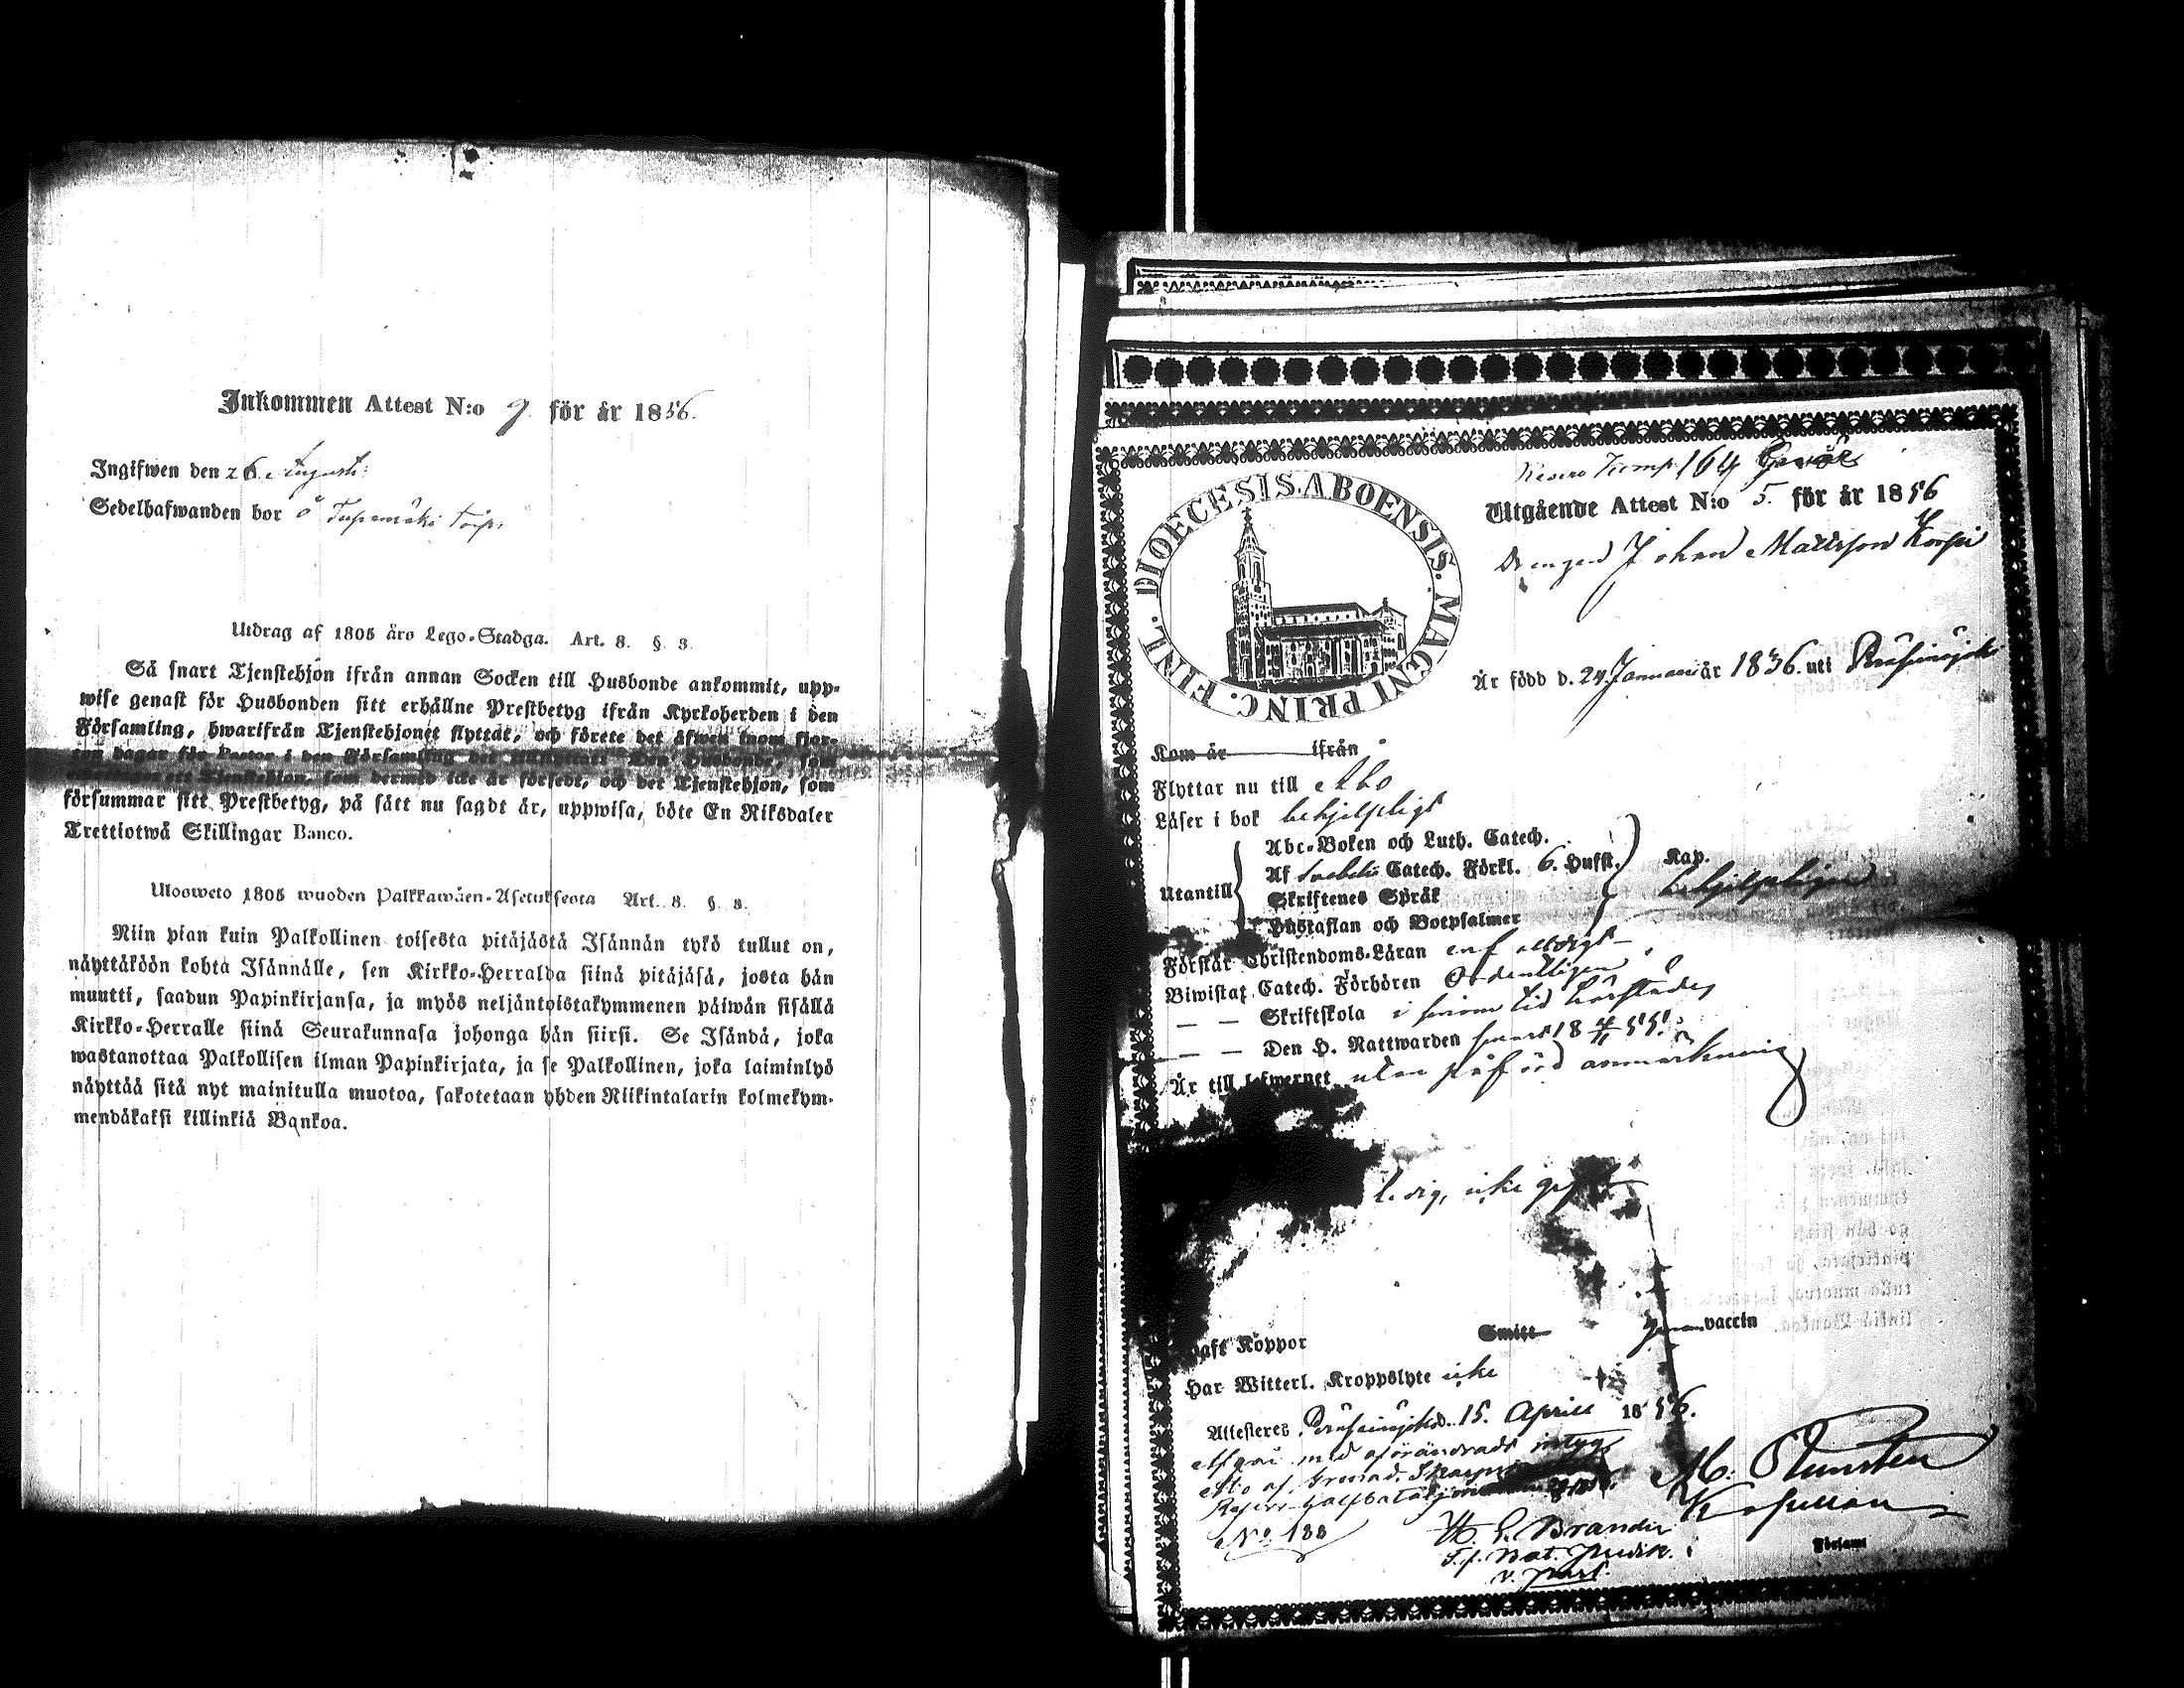 Inkommen Attest N:o 9. för år 1856.
Ingifwen den 26 Augusti:
Sedelhafwanden bor å Tupamäki torp.
Utdrag af 1805 års Lego-Stadga. Art. 8. §. 3.
Så snart Tjenstehjon ifrån annan Socken till Husbonde ankommit, upp-
wise genast för Husbonden sitt erhållne Prestbetyg ifrån Kyrkoherden i den
Församling, hwarifrån Tjenstehjonet flyttat, och förete det äfwen inom fjor-
ton dagar för Pastor i den Församling det Den Husbonde, som
ett Tjenstehjon, som dermed icke är försedt, och det Tjenstehjon, som
försummar sitt Prestbetyg, på sätt nu sagdt är, uppwisa, böte En Riksdaler
Trettiotwå Skillingar Banco.
Ulosweto 1805 wuoden Palkkawäen-Asetuksesta Art. 8. §. 3.
Niin pian kuin Palkollinen toisesta pitäjästä Isännän tykö tullut on,
näyttäköön kohta Isännälle, sen Kirkko-Herralda siinä pitäjäsä, josta hän
muutti, saadun Papinkirjansa, ja myös neljäntoistakymmenen päiwän sisällä
Kirkko-Herralle siinä Seurakunnasa johonga hän siirsi. Se Isändä, joka
wastanottaa Palkollisen ilman Papinkirjata, ja se Palkollinen, joka laiminlyö
näyttää sitä nyt mainitulla muotoa, sakotetaan yhden Riikintalarin kolmekym-
mendäkaksi killinkiä Bankoa.
DIOECESIS. ABOENSIS. MAGNI PRINC. FINL.
Reserv Komp 164
Utgående Attest N:o 5. för år 1856
Drengen Johan Mattsson Korpi
Är född d. 24 Januari år 1836. uti
Kom år ifrån
Flyttar nu till Åbo
Läser i bok behjelpligt
Utantill
Abc-Boken och Luth. Catech.
Af Catech. Förkl. 6. Hufst. Kap.
Skriftenes Språk behjelpligen
Hustaflan och Botpsalmer
Förstår Christendoms-Läran enfaldigt
Biwistat Catech. Förhören Ordentligen
— — Skriftskola i sinom tid
— — Den H. Nattwarden senast 18 4/11 55.
Är till lefwernet utan påförd anmärkning
ledig, icke
Haft Koppor Smitt vaccin
Har Witterl. Kroppslyte icke
Attesteres 15. Aprill 1856.
med oförändradt intyg
Åbo af Grenad. Skarpsk.
Reserv-Halfbataljon
N:o 188
H. G. Brander
T.f. Bat. Predik.
v. Past.
M. Stunsten
Kapellan
Församl.